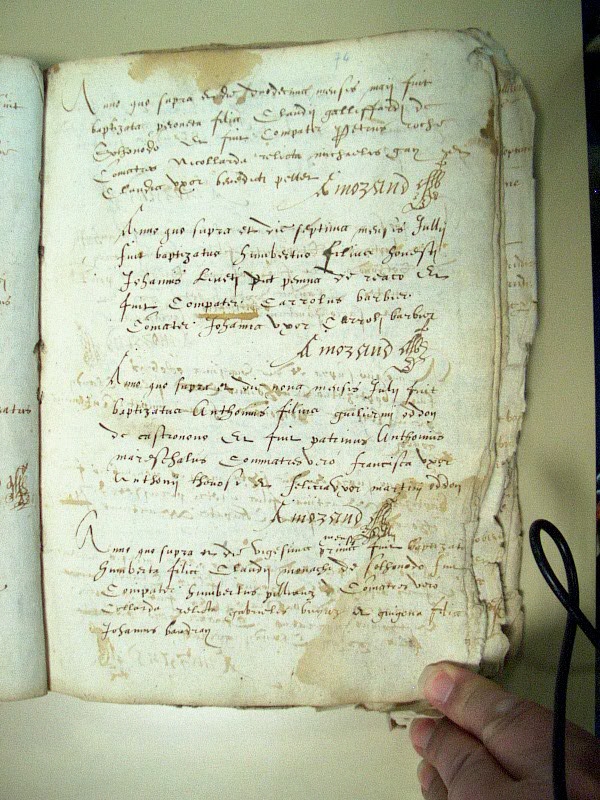 74
Anno quo supra et die mensis maij fuit
baptizata peroneta filia Claudij galliffardi de
Sothonodo Et fuit Compater Petrus roche
Comatres Nicollarda relicta michaelis gay
Claudia uxor benedicti pellet
Amozand
Anno quo supra et die septima mensis Jullij
fuit baptizatus humbertus filius honesti
Johannis de Et
fuit Compater Carrolus barbier
Comater Johanna uxor Carroli barbier
Amozand
Anno quo supra et die nona mensis Julij fuit
baptizatus Anthonius filius guilliermi oddon
de castronovo Et fuit patrinus Anthonius
mareschalus Commatres vero francisca uxor
Anthonij et felicia uxor martini oddon
Amozand
Anno quo supra et die vigesima prima mensis fuit baptizata
humberta filia Claudij monachi de Sothonodo fuit
Compater humbertus Comatres vero
Collarda relicta gabrielis et guigona filia
Johannis baudray